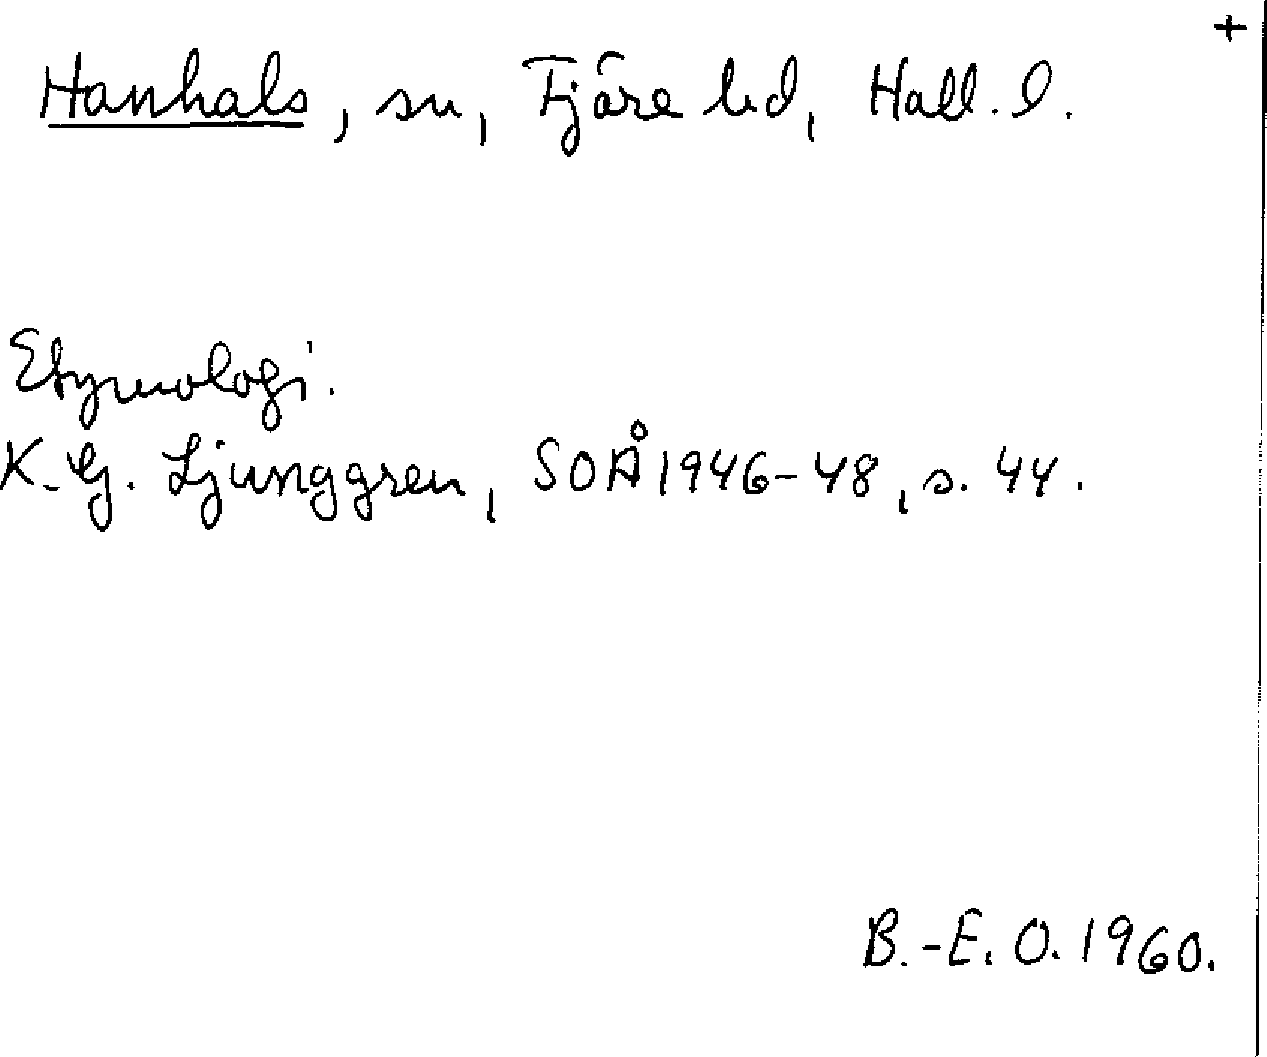 +
Hanhals, sn, Fjäre hd, Hall. l.
Etymologi.
K. G. Ljunggren, SOÅ 1946-48, s. 44.
B.-E. O. 1960.